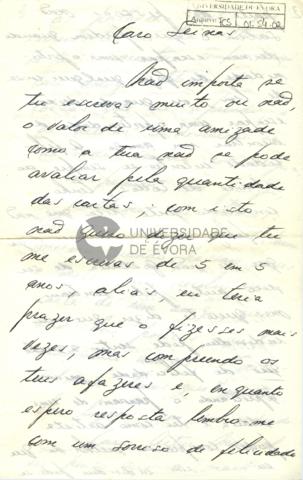 UNIVERSIDADE DE ÉVORA
Caro Seixas
Não importa se
tu escrevas muito ou não,
o valor de uma amizade
como a tua não se pode
avaliar pela quantidade
das cartas: com isto
não quero dizer que tu
UNIVERSIDADE
DE ÉVORA
me escrevas de 5 em 5
anos, aliás, eu teria
prazer que o fizesses mais
vezes, mas compreendo os
teus afazeres e, enquanto
espero resposta lembro-me
com um sorriso de felicidade